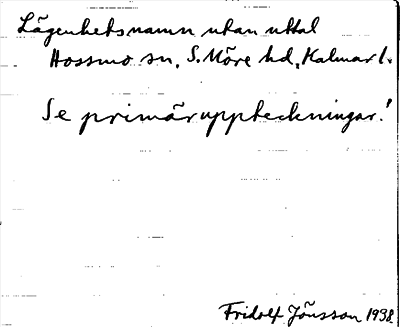 Lägenhetsnamn utan uttal
Hossmo sn, S. Möre hd, Kalmar l.
Se primäruppteckningar!
Fridolf Jönsson 1938